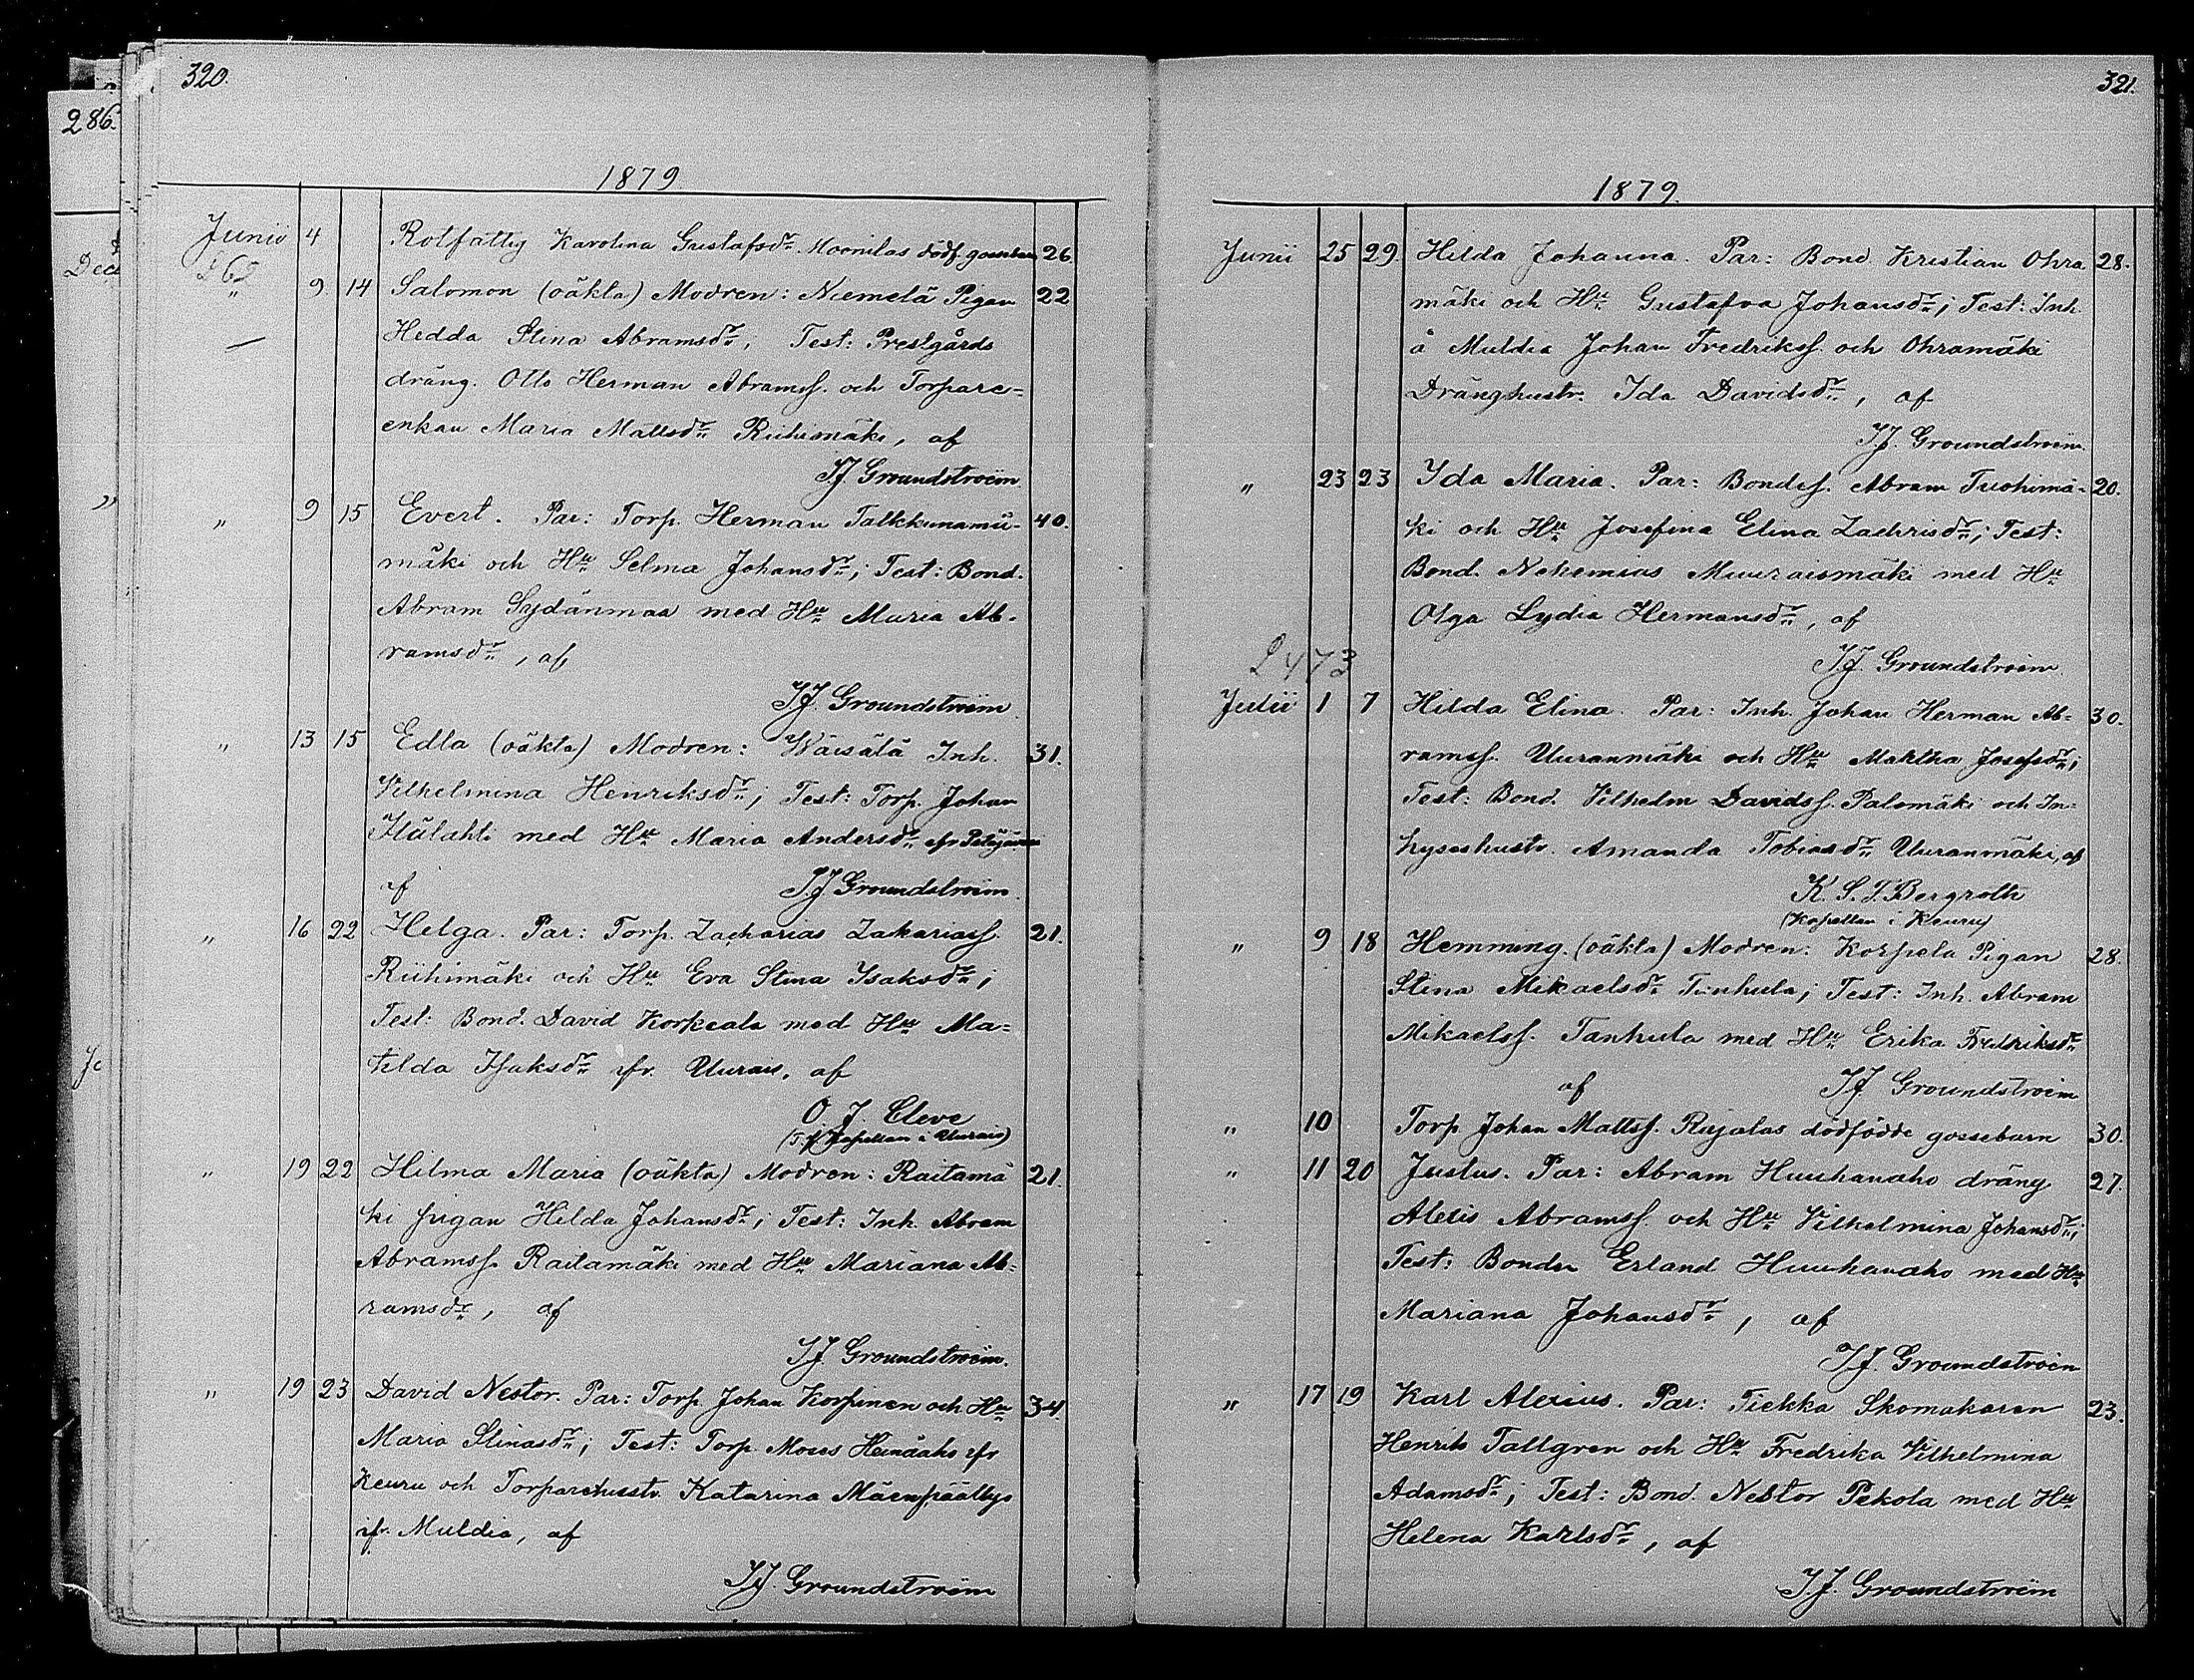 320.
286.
1879
Junii 4 Rotfattig Karolina Gustafsdr. Moonilas dödf. gossebarn 26.
" 9 14 Salomon (oäkta) Modren: Niemelä Pigan 22
Hedda Stina Abramsdr; Test: Prestgårds
dräng. Otto Herman Abramss. och Torpare-
enkan Maria Mattsdr Riihimäki, af
J.J. Groundstroëm.
" 9 15 Evert. Par: Torp. Herman Talkkunamä- 40.
mäki och Hu Selma Johansdr; Test: Bond.
Abram Sydänmaa med Hu Maria Ab-
ramsdr, af
J.J. Groundstroëm.
" 13 15 Edla (oäkta) Modren: Wäisälä Inh. 31.
Vilhelmina Henriksdr; Test: Torp. Johan
med Hu Maria Andersdr ifr
af J.J. Groundstroëm.
" 16 22 Helga. Par: Torp. Zacharias Zakariass. 21.
Riihimäki och Hu Eva Stina Isaksdr;
Test: Bond. David Korkeala med Hu Ma-
tilda Isaksdr ifr. Uurais, af
O. J. Cleve
(T.f. Kapellan i Uurais)
" 19 22 Hilma Maria (oäkta) Modren: Raitamä 21.
ki pigan Hilda Johansdr; Test: Inh. Abram
Abramss. Raitamäki med Hu Mariana Ab-
ramsdr, af
J.J. Groundstroëm.
" 19 23 David Nestor. Par: Torp. Johan Korpinen och Hu 34.
Maria Stinasdr; Test: Torp. Moses Heinäaho ifr
Keuru och Torparehustr. Katarina Mäenpäällys
ifr. Muldia, af
J.J. Groundstroëm
321.
1879.
Junii 25 29. Hilda Johanna. Par: Bond Kristian Ohra 28.
mäki och Hu Gustafva Johansdr; Test: Inh.
å Muldia Johan Fredrikss. och Ohramäki
Dränghustr. Ida Davidsdr, af
J.J. Groundstroëm.
" 23 23 Ida Maria. Par: Bondes. Abram Tuohimä- 20.
ki och Hu Josefina Elina Zachrisdr; Test:
Bond. Nehemias Muuraismäki med Hu
Olga Lydia Hermansdr, af
2473 J.J. Groundstroëm
Julii 1 7 Hilda Elina. Par: Inh. Johan Herman Ab- 30.
ramss. Uuranmäki och Hu Martha Josefsdr;
Test: Bond. Vilhelm Davidss. Palomäki och In-
hyseshustr. Amanda Tobiasdr Uuranmäki, af
K. S. T. Bergroth
(Kapellan i Keuru)
" 9 18 Hemming. (oäkta) Modren: Korpela Pigan 28.
Stina Mikaelsdr Tanhula; Test: Inh. Abram
Mikaelss. Tanhula med Hu Erika Fredriksdr
af J.J. Groundstroëm
" 10 Torp Johan Mattss. Rujalas dödfödde gossebarn 30.
" 11 20 Justus. Par: Abram Huuhanaho dräng 27.
Alexis Abramss. och Hu Vilhelmina Johansdr;
Test: Bonden Erland Huuhanaho med Hu
Mariana Johansdr, af
J.J. Groundstroëm
" 17 19 Karl Alexius. Par: Tiekka Skomakaren 23.
Henrik Tallgren och Hu Fredrika Vilhelmina
Adamsdr; Test: Bond. Nestor Pekola med Hu
Helena Karlsdr, af
J.J. Groundstroëm